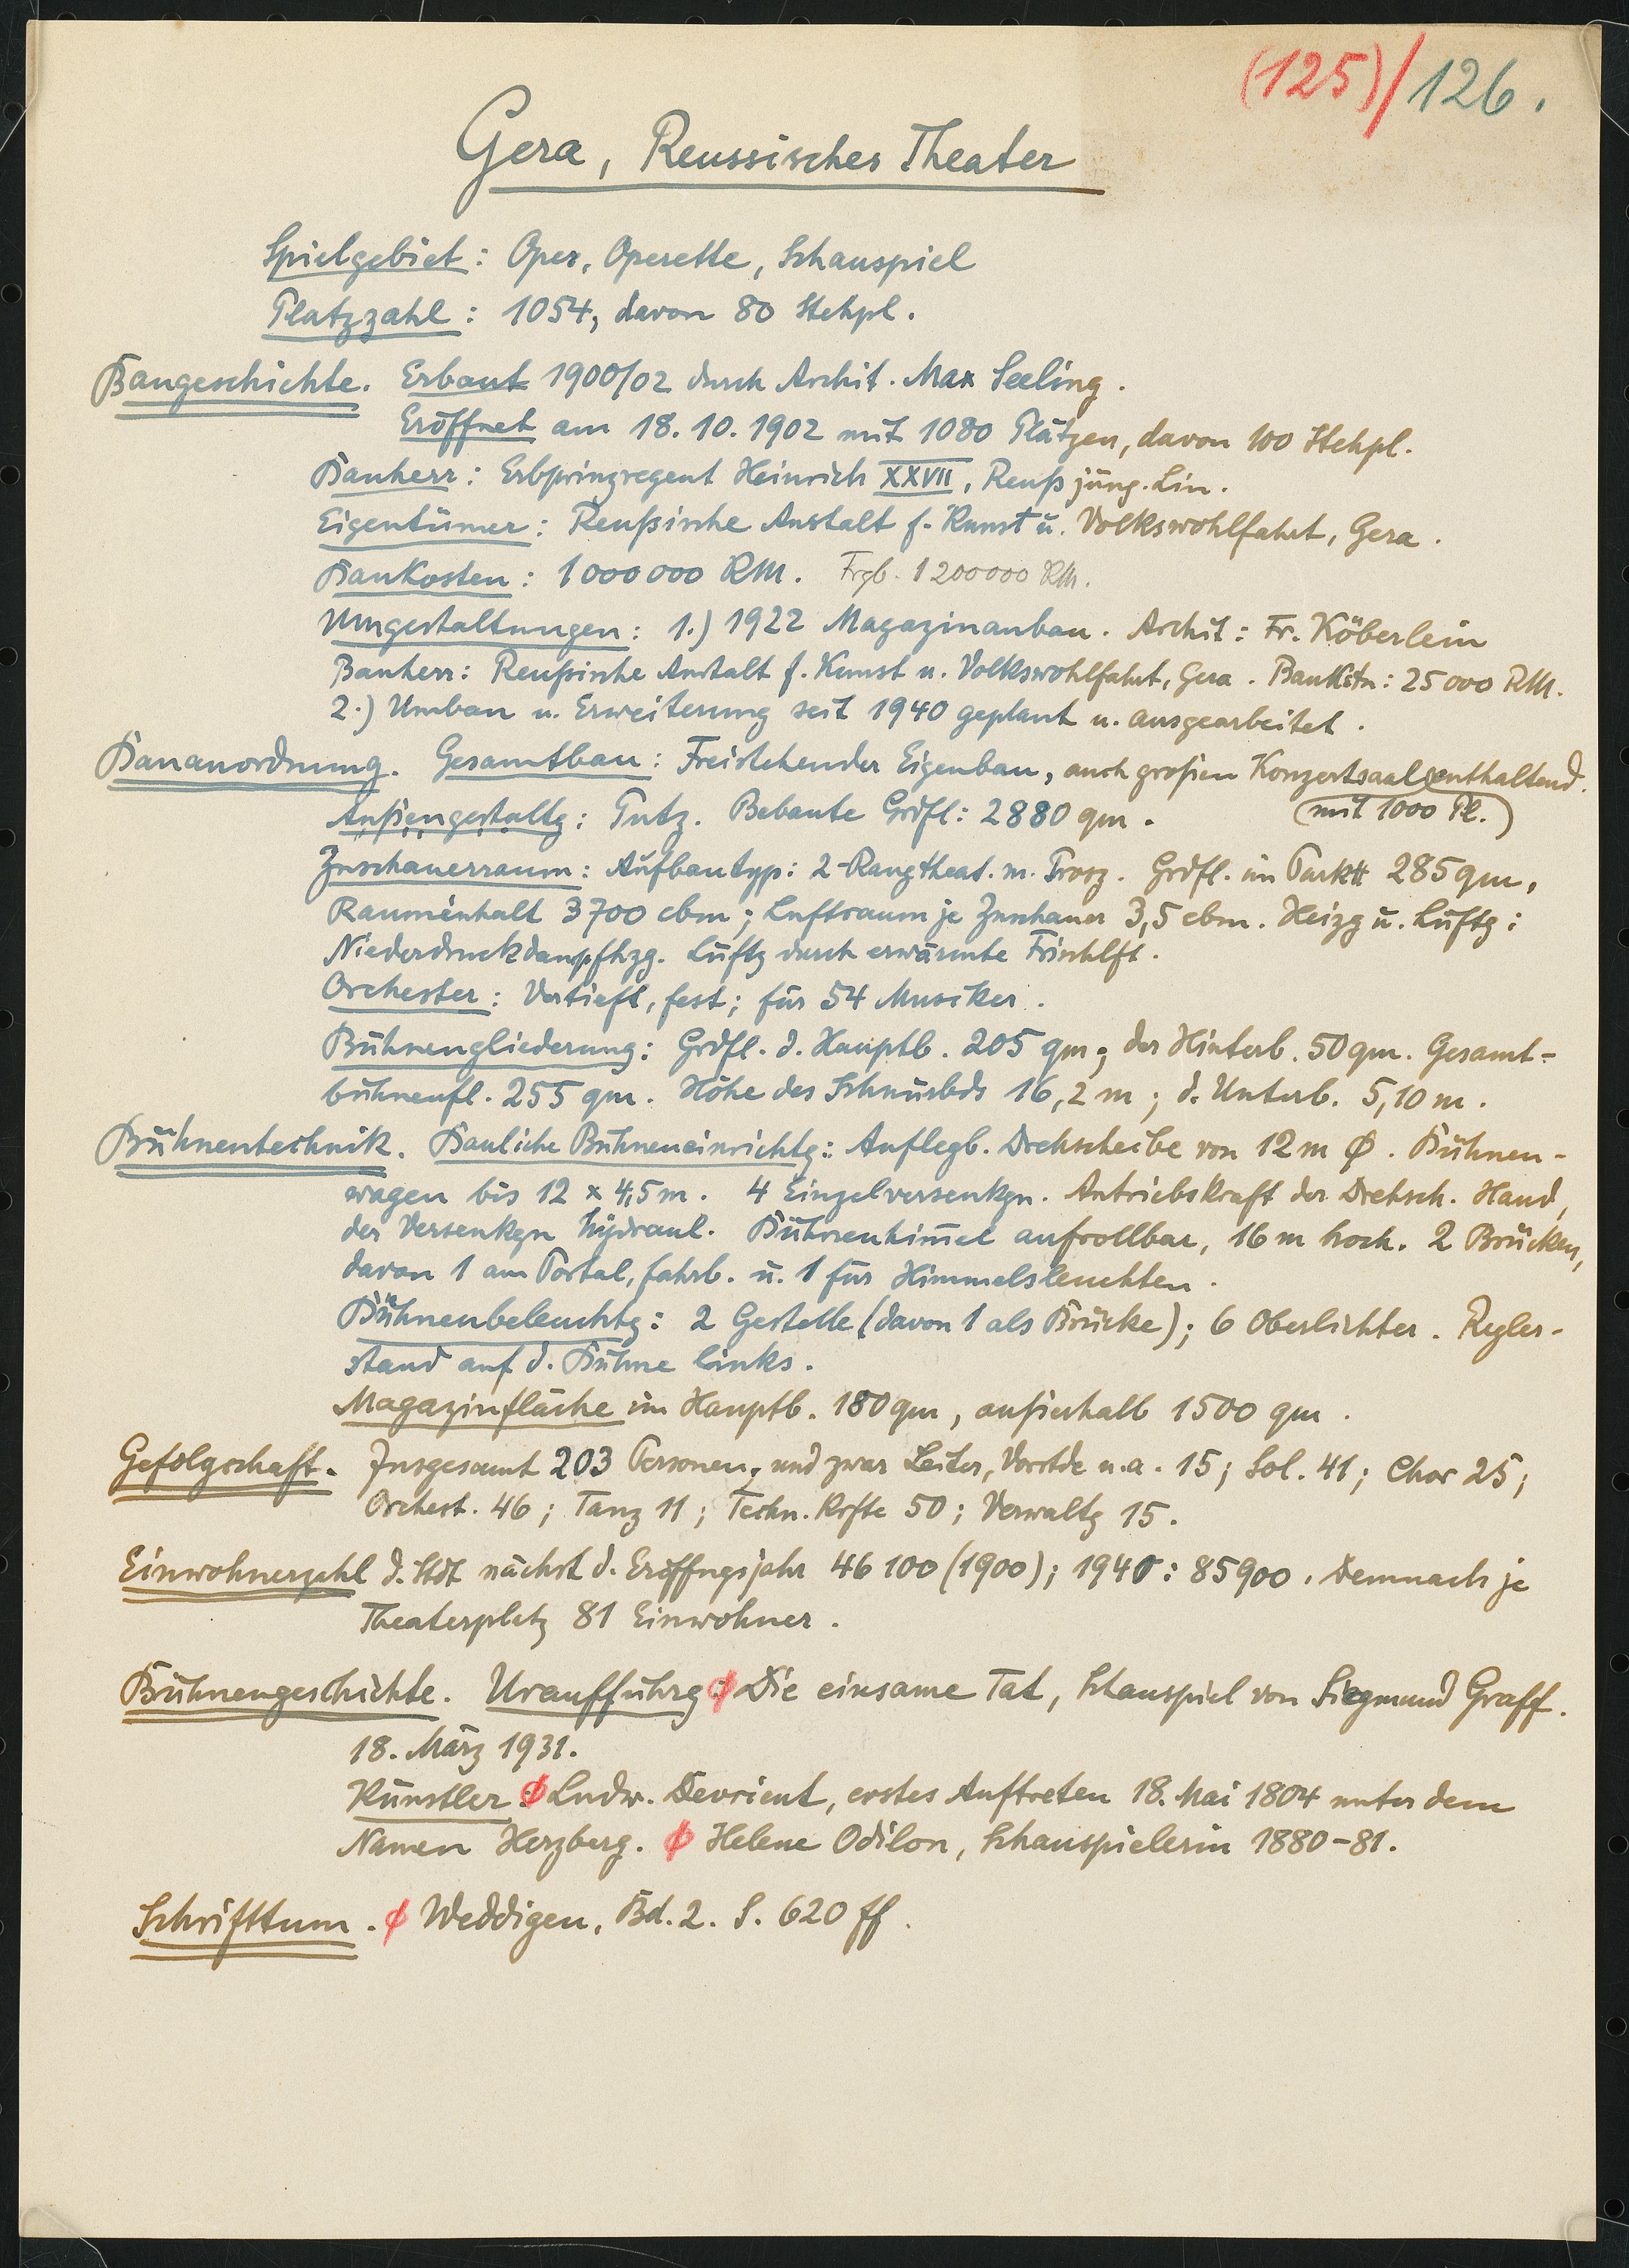 (125)/126.
Gera, Reussisches Theater
Spielgebiet: Oper, Operette, Schauspiel
Platzzahl: 1054, davon 80 Stehpl.
Baugeschichte. Erbaut 1900/02 durch Archit. Max Seeling.
Eröffnet am 18.10.1902 mit 1080 Plätzen, davon 100 Stehpl.
Bauherr: Erbprinzregent Heinrich XXVII, Reuß jüng. Lin.
Eigentümer: Reußische Anstalt f. Kunst u. Volkswohlfahrt, Gera.
Baukosten: 1 000 000 RM. Frgb. 1 200 000 RM.
Umgestaltungen: 1.) 1922 Magazinanbau. Archit: Fr. Köberlein
Bauherr: Reußische Anstalt f. Kunst u. Volkswohlfahrt, Gera. Baukstn: 25 000 RM.
2.) Umbau u. Erweiterung seit 1940 geplant u. ausgearbeitet.
Bauanordnung. Gesamtbau: Freistehender Eigenbau, auch großen Konzertsaal enthaltend.
(mit 1000 Pl.)
Außengestaltg: Putz. Bebaute Grdfl: 2880 qm.
Zuschauerraum: Aufbautyp: 2-Rangtheat. m. Prosz. Grdfl. im Parktt 285 qm,
Rauminhalt 3700 cbm; Luftraum je Zuschauer 3,5 cbm. Heizg u. Lüftg:
Niederdruckdampfhzg. Lüftg durch erwärmte Frischlft.
Orchester: Vertieft, fest; für 54 Musiker.
Bühnengliederung: Grdfl. d. Hauptb. 205 qm; der Hinterb. 50 qm. Gesamt-
bühnenfl. 255 qm. Höhe des Schnürbds 16,2 m; d. Unterb. 5,10 m.
Bühnentechnik. Bauliche Bühneneinrichtg: Auflegb. Drehscheibe von 12 m Ø. Bühnen-
wagen bis 12 x 4,5 m. 4 Einzelversenkgn. Antriebskraft der Drehsch. Hand,
der Versenkgn hydraul. Bühnenhim̄el aufrollbar, 16 m hoch. 2 Brücken,
davon 1 am Portal, fahrb. u. 1 für Himmelsleuchten.
Bühnenbeleuchtg: 2 Gestelle (davon 1 als Brücke); 6 Oberlichter. Regler-
stand auf d. Bühne links.
Magazinfläche im Hauptb. 180 qm, außerhalb 1500 qm.
Gefolgschaft. Insgesamt 203 Personen, und zwar Leiter, Vorstde u.a. 15; Sol. 41; Chor 25;
Orchest. 46; Tanz 11; Techn. Krfte 50; Verwaltg 15.
Einwohnerzahl d. Stdt nächst d. Eröffngsjahr 46 100 (1900); 1940: 85 900. Demnach je
Theaterplatz 81 Einwohner.
Bühnengeschichte. Urauffuhrg: Die einsame Tat, Schauspiel von Siegmund Graff.
18. März 1931.
Künstler: Ludw. Devrient, erstes Auftreten 18. Mai 1804 unter dem
Namen Herzberg. Helene Odilon, Schauspielerin 1880-81.
Schrifttum. Weddigen, Bd. 2. S. 620 ff.